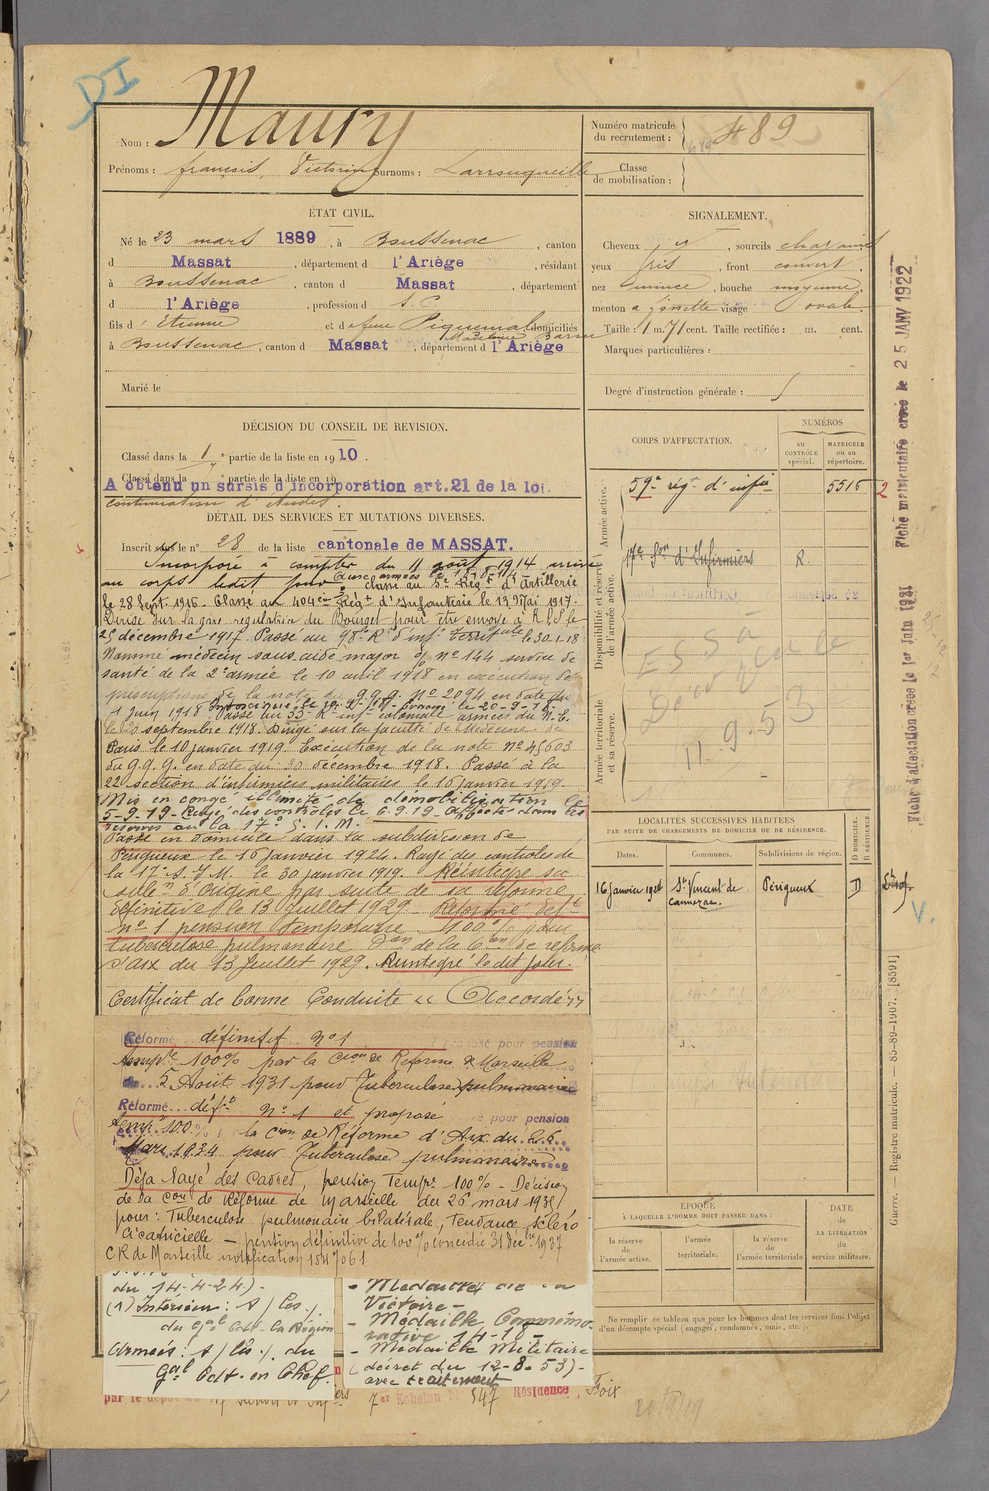 DI
Nom : Maury
Prénoms : françois Victorin surnoms : Larruqueille
Numéro matricule du recrutement : 489
Classe de mobilisation :
ÉTAT CIVIL.
Né le 23 mars 1889, à Boussenac, canton
d Massat, département d l'Ariège, résidant
à Boussenac, canton d Massat, département
d l'Ariège, profession d S. P.
fils d' Etienne et de feue Piquemal domiciliés
Madeleine
à Boussenac, canton d Massat, département d l'Ariège
Marié le
SIGNALEMENT.
Cheveux, sourcils chatains
yeux gris, front couvert,
nez mince, bouche moyenne,
menton à fossette visage ovale.
Taille : 1 m. 71 cent. Taille rectifiée : m. cent.
Marques particulières :
Degré d'instruction générale : 5
DÉCISION DU CONSEIL DE REVISION.
Classé dans la 1 e partie de la liste en 1910.
Classé dans la e partie de la liste en 19
A obtenu un sursis d'incorporation art. 21 de la loi
continuation d'études.
DÉTAIL DES SERVICES ET MUTATIONS DIVERSES.
Inscrit sous le n° 28 de la liste cantonale de MASSAT.
Incorporé à compter du 11 août 1914 arrivé
au corps ledit jour classé au 5e Régt d'artillerie
le 28 Sept. 1916. Classé au 404eme Régt d'Infanterie le 13 Mai 1917.
Dirigé sur la gare régulatrice du Bourget pour être envoyé à
25 décembre 1917. Passé au 98e Rt d'inf. territale le 30-1-18
Nommé médecin sous aide major % n° 144 service de
santé de la 2e armée le 10 avril 1918 en exécution des
prescriptions de la note du G.Q.G. n° 2094 en date du
1 Juin 1918 Passé au 33e Rt inf. coloniale armées du N.E.
le 20 septembre 1918. Dirigé sur la faculté de Médecine de
Paris le 10 janvier 1919. Exécution de la note N° 45603
du G.Q.G. en date du 30 décembre 1918. Passé à la
22e section d'infirmiers militaires le 16 janvier 1919.
Mis en congé illimité de démobilisation le
5-9-19 Rayé des contrôles le 6-9-19 Affecté dans les
réserves au la 17e S. I. M.
Passé en domicile dans la subdivision de
Périgueux le 16 janvier 1924. Rayé des contrôles de
la 17e S. I. M. le 30 janvier 1919. Réintégré sa
subdn d'origine par suite de sa réforme
définitive le 13 juillet 1929. Réformé deft
n° 1 pension temporaire 100% pour
tuberculose pulmonaire Don de la Con de réforme
d'Aix du 13 juillet 1929. Réintégré le dit jour.
Certificat de bonne Conduite « Accordé »
Réformé définitif n° 1 proposé pour pension
tempre 100% par la Con de Réforme de Marseille
du 5 Août 1931 pour Tuberculose pulmonaire
Réformé déft n° 1 et proposé pour pension
temp. 100% la Con de Réforme d'Aix du
Mars 1934 pour Tuberculose pulmonaire
Déjà Rayé des Cadres, pension Tempre 100% - Décision
de la Con de Réforme de Marseille du 26 mars 1936
pour : Tuberculose pulmonaire bilatérale, Tendance scléro
cicatricielle — pension définitive de 100% concédée 31 Décbre 1937
CR de Marseille notification 1547061
du 14-4-24)-
(1) Intérieur : s/les/.
du Gal Cdt la Région
Armées : s/les/. du
Gal Cdt. en Chef.
- Médaille de la
Victoire -
- Médaille Commémo-
rative 14-18 -
- Médaille Militaire
(décret du 12-8-53)-
avec traitement
par le dépôt
7er Echelon N° 547 Résidence, Foix
CORPS D'AFFECTATION.
NUMÉROS
AU CONTRÔLE spécial.
MATRICULE ou au répertoire.
Armée active.
59e régt d'infie 5516 2
Disponibilité et réserve de l'armée active.
17e Son d'Infirmiers R.
Armée territoriale et sa réserve.
11.9.53
LOCALITÉS SUCCESSIVES HABITÉES
PAR SUITE DE CHANGEMENTS DE DOMICILE OU DE RÉSIDENCE.
Dates. Communes. Subdivisions de région. D DOMICILE. R RÉSIDENCE.
16 janvier 1924 St Vincent de Connezac. Périgueux D
V.
ÉPOQUE
À LAQUELLE L'HOMME DOIT PASSER DANS :
la réserve de l'armée active.
l'armée territoriale.
la réserve de l'armée territoriale
DATE DE LA LIBÉRATION du service militaire.
Ne remplir ce tableau que pour les hommes dont les services font l'objet
d'un décompte spécial (engagés, condamnés, omis, etc.).
Fiche matriculaire créée le 25 JANV 1922
Fiche d'affectation créée le 1er Juin 1931
Guerre. — Registre matricule. — 85-89-1907. [8591]